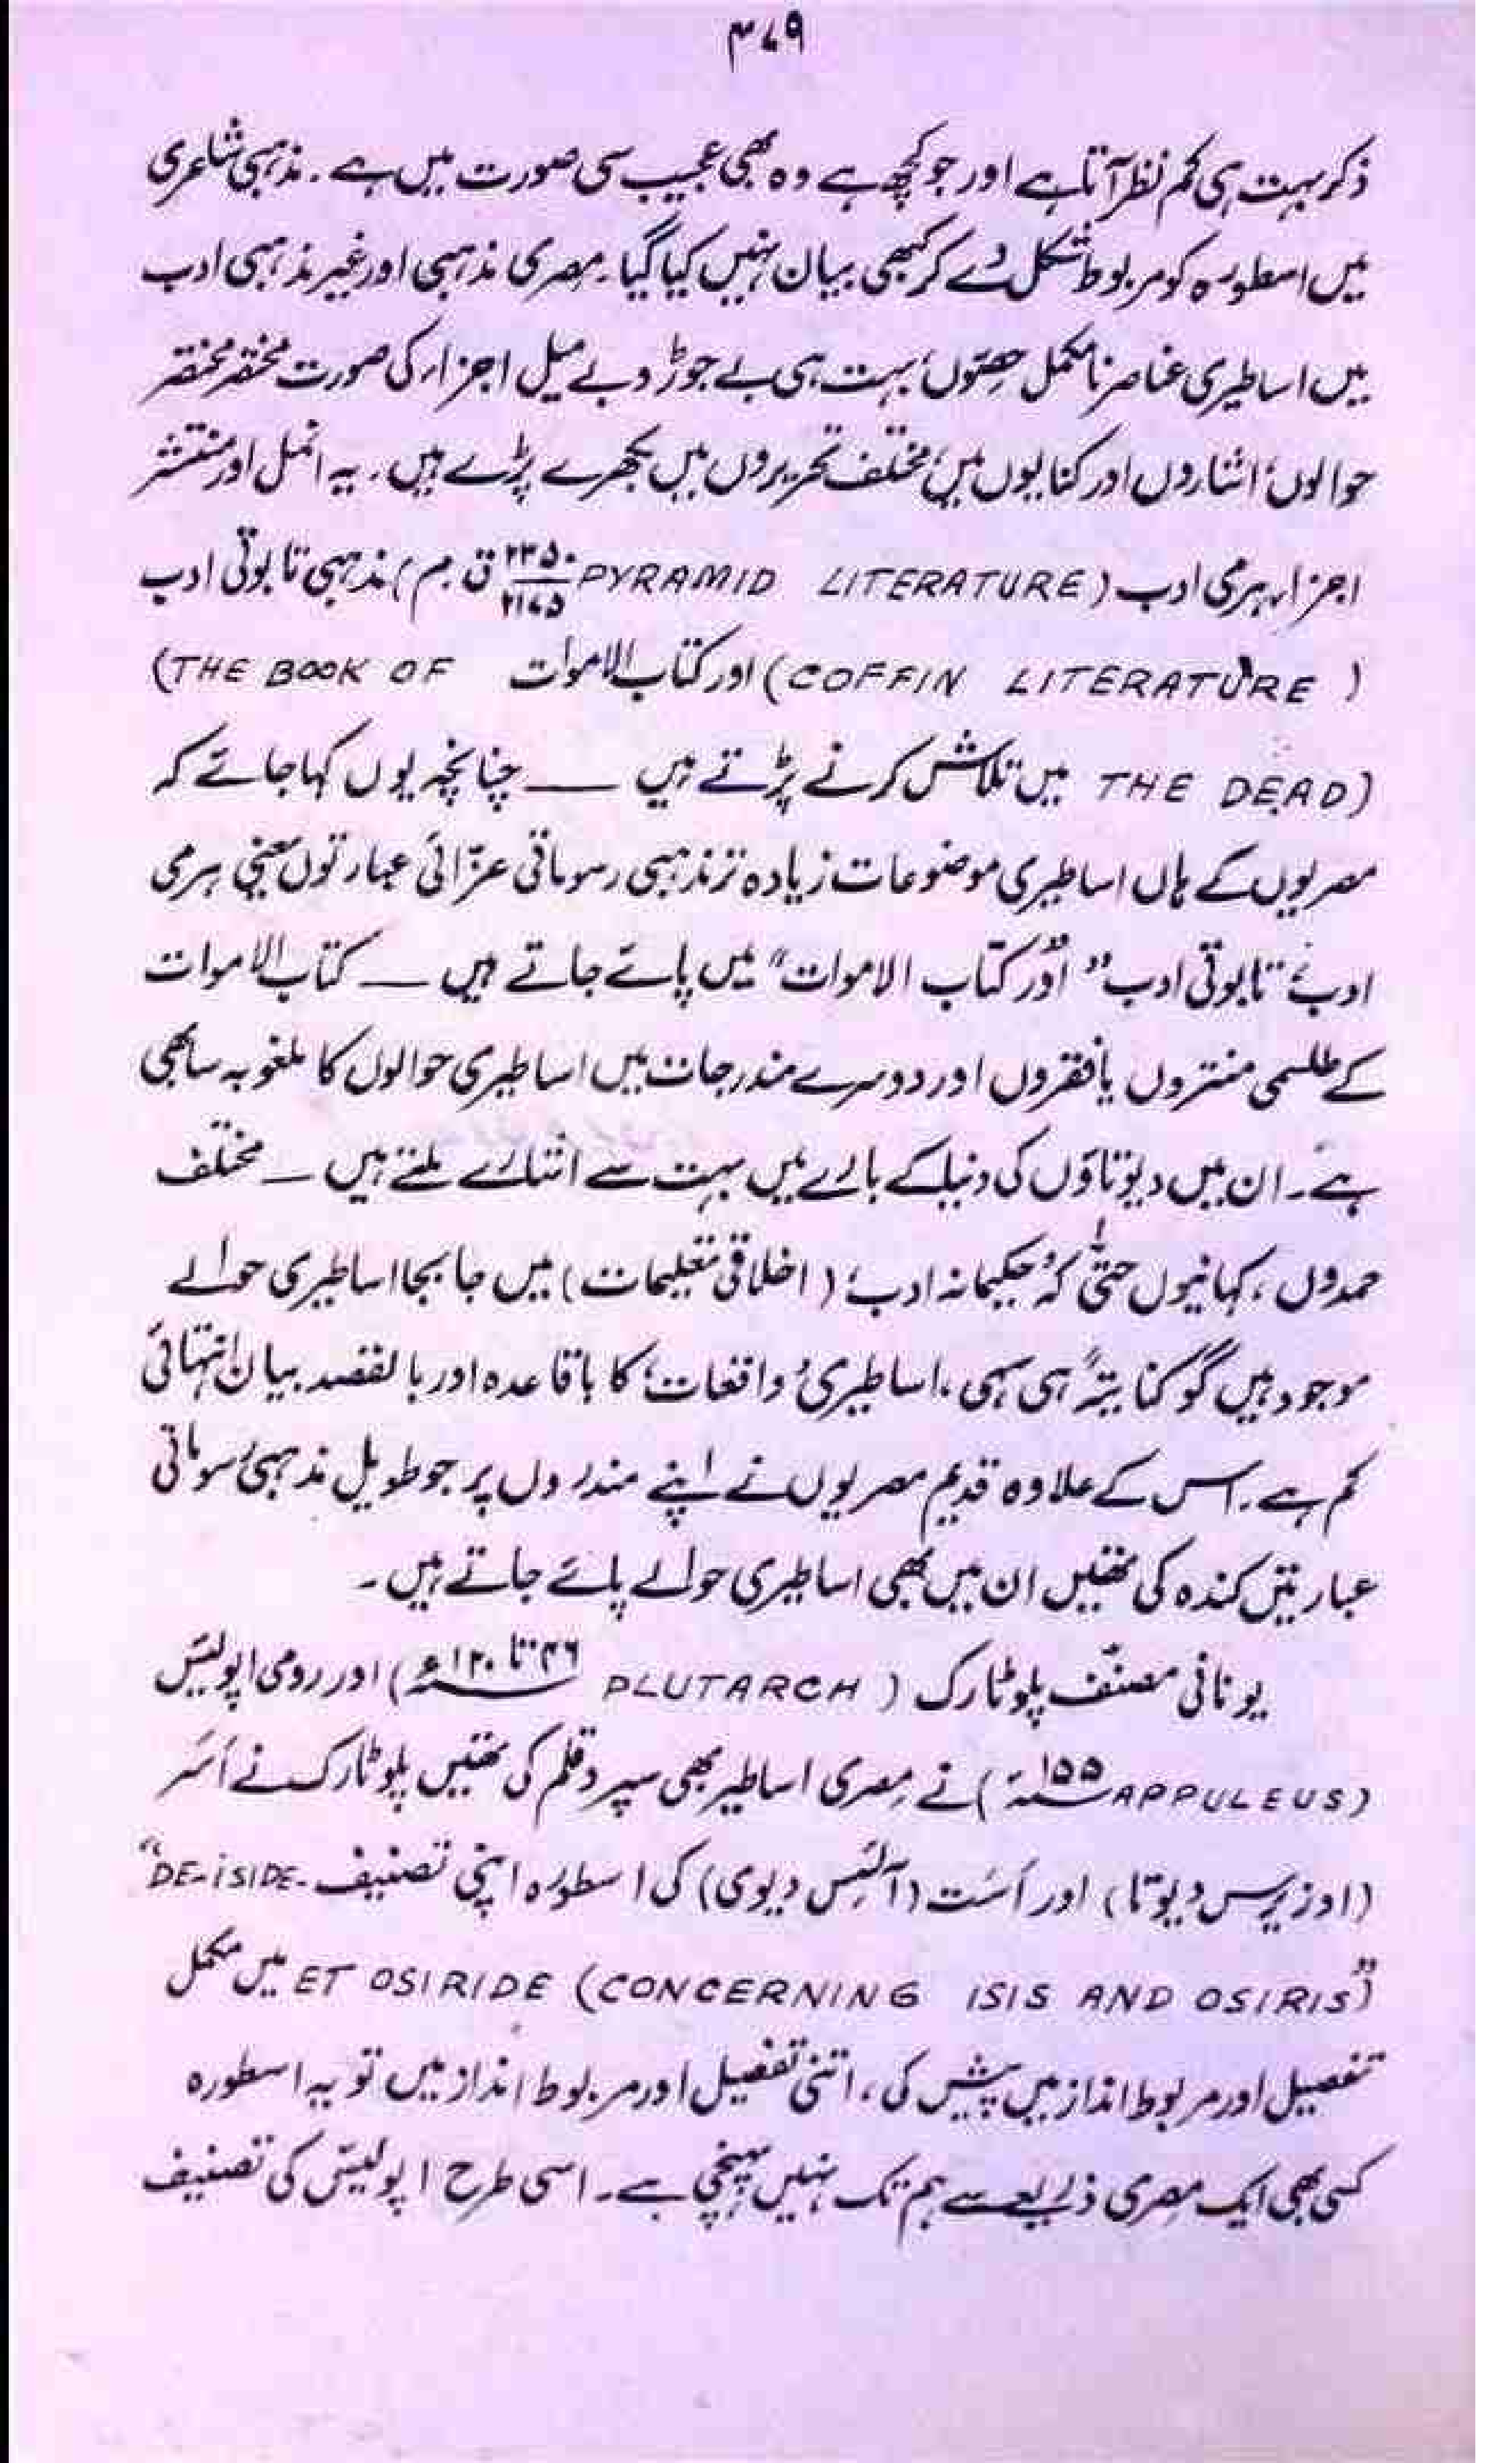 ۳۷۹
ذکر بہت ہی کم نظر آتا ہے اور جو کچھ ہے وہ بھی عجیب سی صورت میں ہے ۔ مذہبی شاعری
میں اسطورہ کو مربوط شکل دے کر کبھی بیان نہیں کیا گیا ۔ مصری مذہبی اور غیر مذہبی ادب
میں اساطیری عناصر نامکمل حصّوں، بہت ہی بے جوڑ و بے میل اجزاء کی صورت مختصر مختصر
حوالوں، اشاروں اور کنایوں میں، مختلف تحریروں میں بکھرے پڑے ہیں ۔ یہ انمل اور منتشر
اجزاء ہرمی ادب (PYRAMID LITERATURE ۲۳۵۰ / ۲۱۷۵ ق م) مذہبی تابوتی ادب
(COFFIN LITERATURE) اور کتاب الاموات (THE BOOK OF
THE DEAD) میں تلاش کرنے پڑتے ہیں ـــ چنانچہ یوں کہا جائے کہ
مصریوں کے ہاں اساطیری موضوعات زیادہ تر مذہبی رسوماتی عزّائی عبارتوں یعنی ہرمی
ادب، "تابوتی ادب" اور "کتاب الاموات" میں پائے جاتے ہیں ـــ کتاب الاموات
کے طلسمی منتروں یا فقروں اور دوسرے مندرجات میں اساطیری حوالوں کا ملغوبہ سا بھی
ہے ۔ ان میں دیوتاؤں کی دنیا کے بارے میں بہت سے اشارے ملتے ہیں ـ مختلف
حمدوں ، کہانیوں حتیٰ کہ 'حکیمانہ ادب' (اخلاقی تعلیمات) میں جا بجا اساطیری حوالے
موجود ہیں گو کنایتہً ہی سہی ، اساطیری 'واقعات' کا باقاعدہ اور بالقصد بیان انتہائی
کم ہے ۔ اس کے علاوہ قدیم مصریوں نے اپنے مندروں پر جو طویل مذہبی رسوماتی
عبارتیں کندہ کی تھیں ان میں بھی اساطیری حوالے پائے جاتے ہیں ۔
یونانی مصنّف پلوٹارک (PLUTARCH ۴۶ تا ۱۲۰ء) اور رومی اپولیئس
(APPULEUS ۱۵۵ء) نے مصری اساطیر بھی سپرد قلم کی تھیں پلوٹارک نے اُسَر
(اوزیریس دیوتا) اور اُسَت (آئسِس دیوی) کی اسطورہ اپنی تصنیف "DE-ISIDE-
ET OSIRIDE (CONCERNING ISIS AND OSIRIS)" میں مکمل
تفصیل اور مربوط انداز میں پیش کی ، اتنی تفصیل اور مربوط انداز میں تو یہ اسطورہ
کسی بھی ایک مصری ذریعے سے ہم تک نہیں پہنچی ہے ۔ اسی طرح اپولیئس کی تصنیف